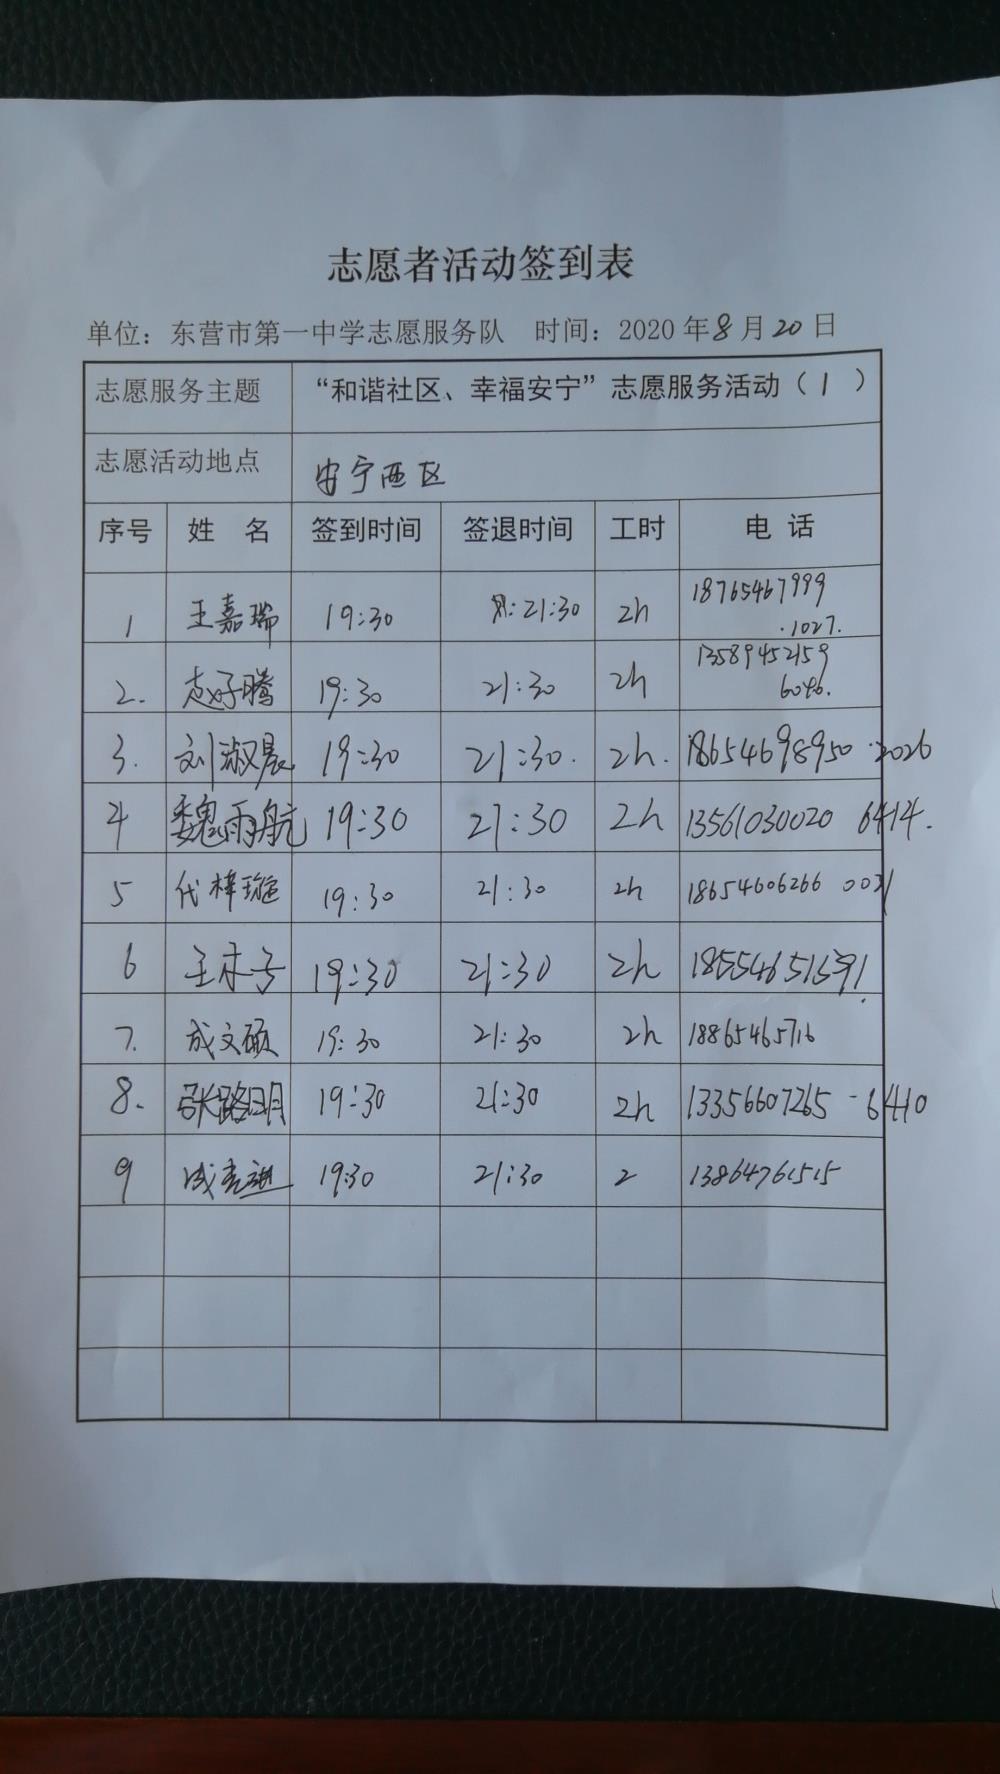 志愿者活动签到表
单位：东营市第一中学志愿服务队 时间：2020年8月20日
志愿服务主题 “和谐社区、幸福安宁”志愿服务活动（1）
志愿活动地点 安宁西区
序号 姓 名 签到时间 签退时间 工时 电 话
1 王嘉瑞 19:30 21:30 2h 18765467999
.1027.
2. 19:30 21:30 2h 13589452159
6046.
3. 刘淑晨 19:30 21:30. 2h. 18654698950 .2026
4 魏雨航 19:30 21:30 2h 13561030020 6414.
5 代梓璇 19:30 21:30 2h 18654606266 0031
6 王木子 19:30 21:30 2h
7. 成文硕 19:30 21:30 2h 18865465716
8. 张路明 19:30 21:30 2h 13356607265 - 6410
9 19:30 21:30 2 13864761515